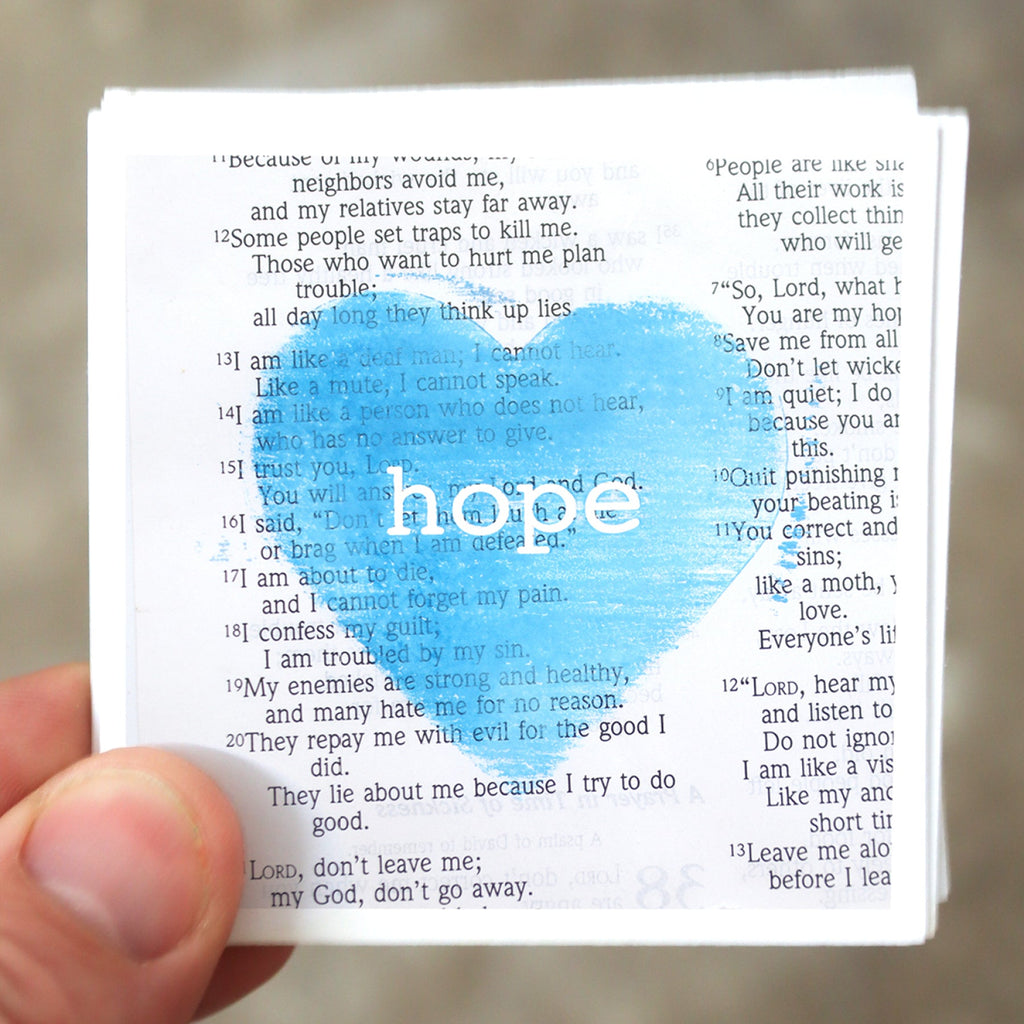 11Because of my wounds, my
neighbors avoid me,
and my relatives stay far away.
12Some people set traps to kill me.
Those who want to hurt me plan
trouble;
all day long they think up lies.
13I am like a deaf man; I cannot hear.
Like a mute, I cannot speak.
14I am like a person who does not hear,
who has no answer to give.
15I trust you, LORD.
You will answer, my Lord and God.
16I said, “Don’t let them laugh at me
or brag when I am defeated.”
17I am about to die,
and I cannot forget my pain.
18I confess my guilt;
I am troubled by my sin.
19My enemies are strong and healthy,
and many hate me for no reason.
20They repay me with evil for the good I
did.
They lie about me because I try to do
good.
LORD, don’t leave me;
my God, don’t go away.
hope
6People are like sha
All their work is
they collect thin
who will ge
7“So, Lord, what h
You are my hop
8Save me from all
Don’t let wicke
9I am quiet; I do
because you ar
this.
10Quit punishing
your beating is
11You correct and
sins;
like a moth, y
love.
Everyone’s lif
12“LORD, hear my
and listen to
Do not ignor
I am like a vis
Like my anc
short tim
13Leave me alo
before I lea